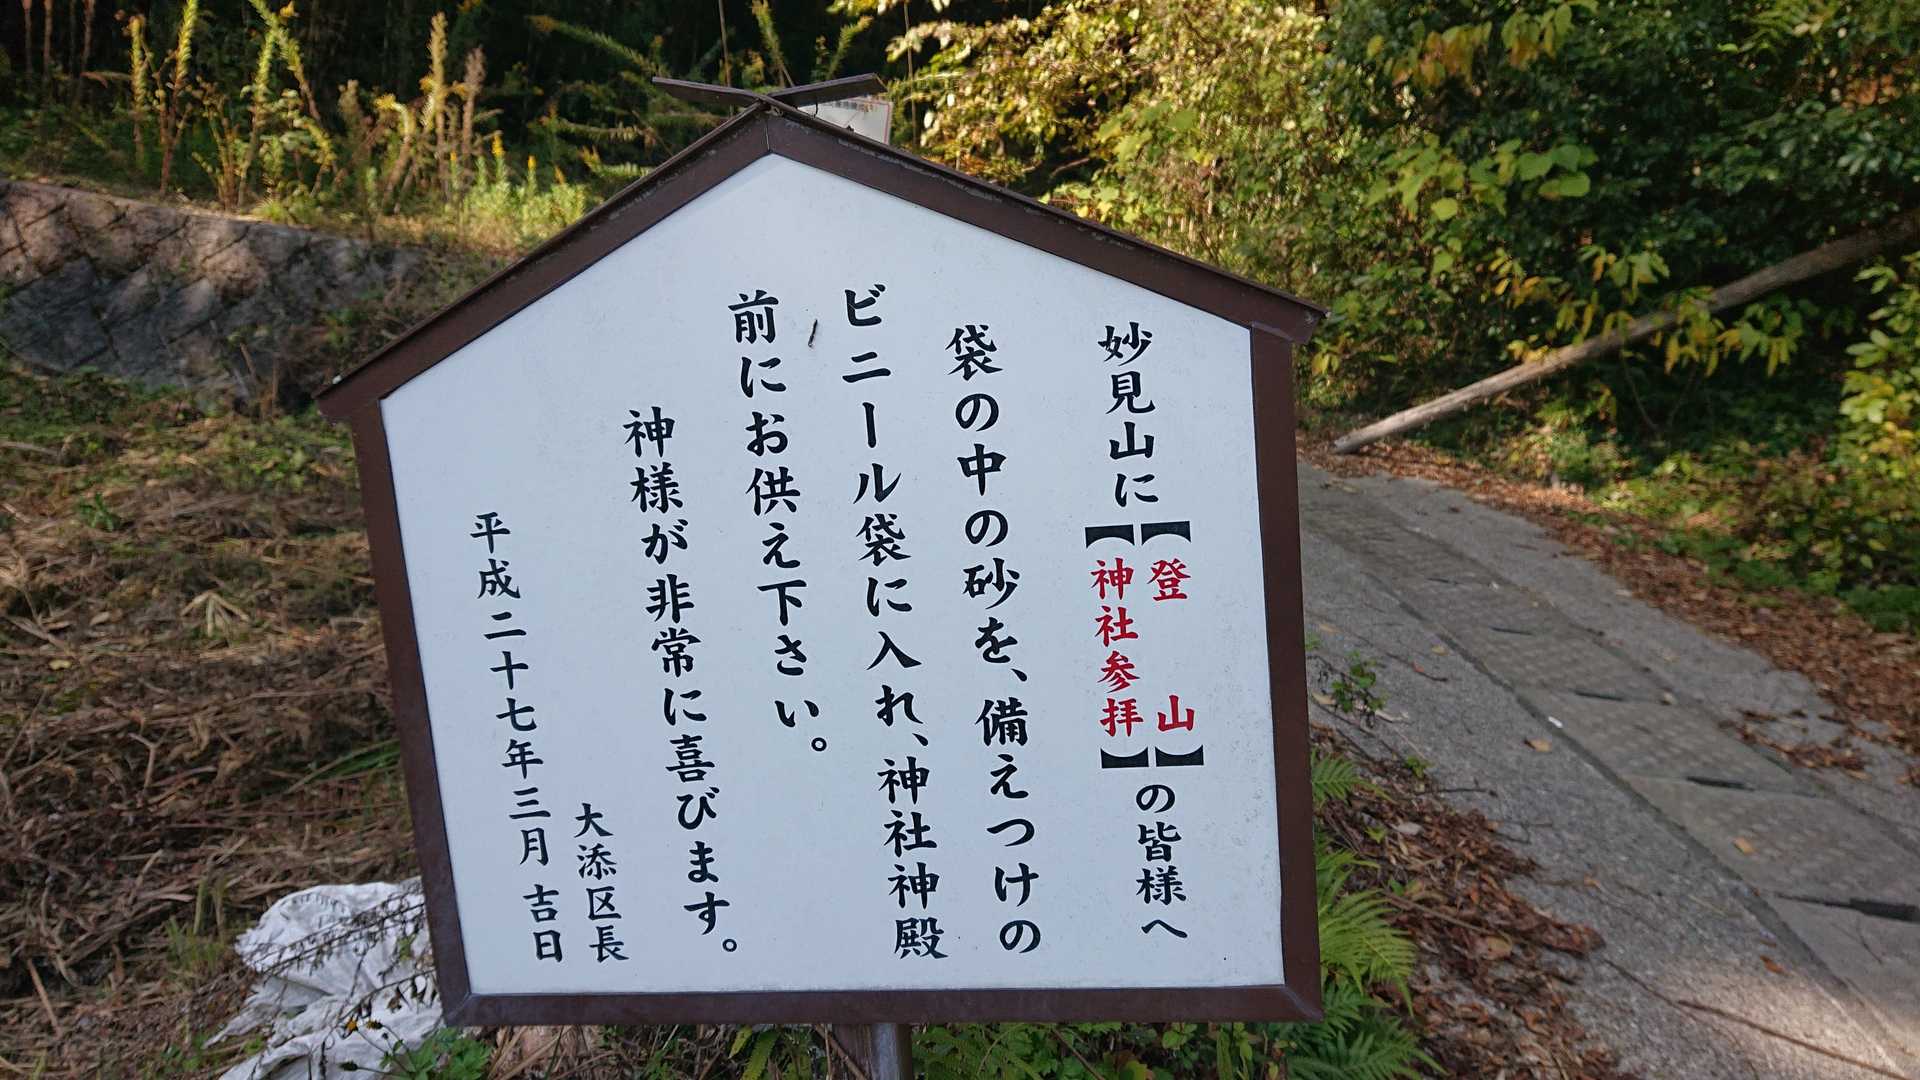 妙見山に【登山】【神社参拝】の皆様へ
袋の中の砂を、備えつけの
ビニール袋に入れ、神社神殿
前にお供え下さい。
神様が非常に喜びます。
大添区長
平成二十七年三月吉日